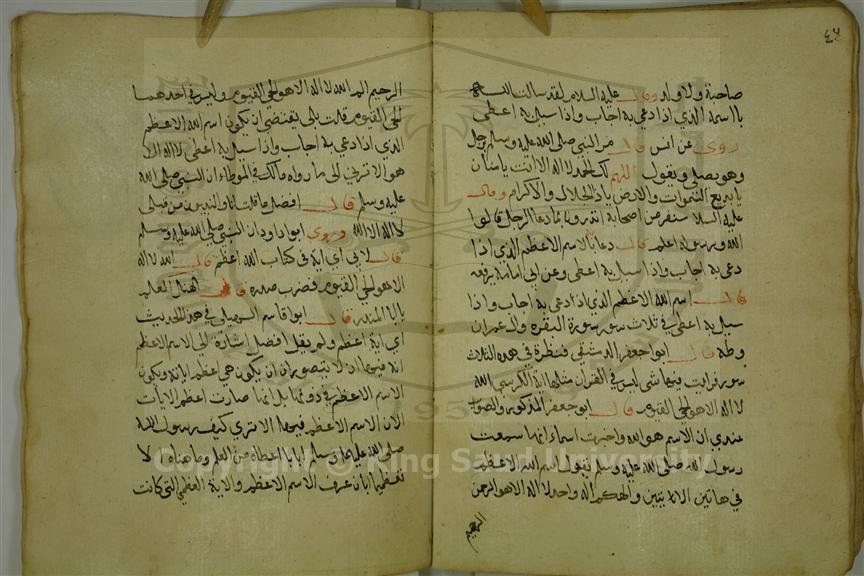 ٤٦
صاحبة ولا ولد وقال عليه السلام لقد سالت الله
بااسمه الذي اذا دعي به اجاب واذا سيل به اعطى
روى عن انس قال مر النبي صلى الله عليه وسلم برجل
وهو يصلي ويقول اللهم لك الحمد لا اله الا انت يا منان
يا بديع السموات والارض ياذا الجلال والاكرام وقال
عليه السلا لنفر من اصحابه اتدرو بما دعا الرجل قالوا
الله ورسوله اعلم قال دعا بالاسم الاعظم الذي اذا
دعي به اجاب واذا سيل به اعطى وعن ابي امامة يرفعه
قال اسم الله الاعظم الذي اذا دعي به اجاب واذا
سيل به اعطى في ثلاث سور سورة البقره وال عمران
وطه قال ابو جعفر الدمشقي فنظرة في هده الثلاث
سور فرايت فيها شي ليس في القران مثلها اية الكرسي الله
لا اله الا هو الحي القيوم قال ابو جعفر المذكور والصواب
عندي ان الاسم هو الله واخترت اسماء انها سمعت
رسول الله صلى الله عليه وسلم يقول اسم الله الاعظم
في هاتين الايتين والهكم اله واحد لا اله الا هو الرحمن
الرحيم
الرحيم الم الله لا اله الا هو الحي القيوم وليس في احدهما
الحي القيوم قلت بلى يقتضي ان يكون اسم الله الاعظم
الذي اذا دعي به اجاب واذا سيل به اعطى لا اله الا
هو الا ترى الى ما رواه مالك في الموطاء ان النبي صلى الله
عليه وسلم قال افضل ما قلت انا والنبيون من قبلي
لا اله الا الله وروى ابو داود ان النبي صلى الله عليه وسلم
قال لابي اي اية في كتاب الله اعظم قال الله لا اله
الا هو الحي القيوم فضرب صدره قال ليهنك العلم
يا ابا المنذر قال ابو القاسم السهيلي في هد الحديث
اي اية اعظم ولم يقل افضل اشارة الى الاسم الاعظم
انه فيها اذ لا يتصور ان يكون هي اعظم اية ويكون
الاسم الاعظم في دونها بل انما صارت اعظم الايات
لان الاسم الاعظم فيها الا ترى كيف رسول الله
صلى الله عليه وسلم ابيا اعطاه من العلم وما هناه الا
لعظيم ابان عرف الاسم الاعظم والاية العظمى التي كانت
Copyright © King Saud University
1957